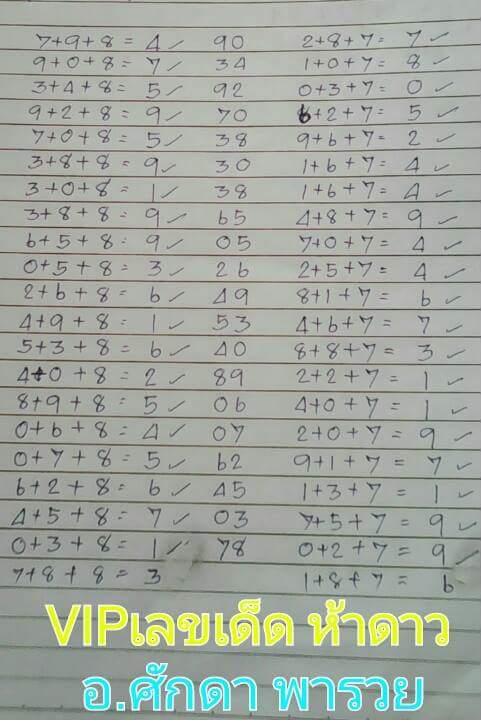 7+9+8 = 4 ✓ 90 2+8+7= 7 ✓
9+0+8= 7 ✓ 34 1+0+7= 8 ✓
3+4+8= 5 ✓ 92 0+3+7= 0 ✓
9+2+8= 9 ✓ 70 6+2+7= 5 ✓
7+0+8= 5 ✓ 38 9+6+7= 2 ✓
3+8+8= 9 ✓ 30 1+6+7= 4 ✓
3+0+8= 1 ✓ 38 1+6+7= 4 ✓
3+8+8= 9 ✓ 65 4+8+7= 9 ✓
6+5+8= 9 ✓ 05 7+0+7= 4 ✓
0+5+8= 3 ✓ 26 2+5+7= 4 ✓
2+6+8= 6 ✓ 49 8+1+7= 6 ✓
4+9+8= 1 ✓ 53 4+6+7= 7 ✓
5+3+8= 6 ✓ 40 8+8+7= 3 ✓
4+0+8= 2 ✓ 89 2+2+7= 1 ✓
8+9+8= 5 ✓ 06 4+0+7= 1 ✓
0+6+8= 4 ✓ 07 2+0+7= 9 ✓
0+7+8= 5 ✓ 62 9+1+7= 7 ✓
6+2+8= 6 ✓ 45 1+3+7= 1 ✓
4+5+8= 7 ✓ 03 7+5+7= 9 ✓
0+3+8= 1 ✓ 78 0+2+7= 9 ✓
7+8+8= 3 1+8+7= 6
VIPเลขเด็ด ห้าดาว
อ.ศักดา พารวย